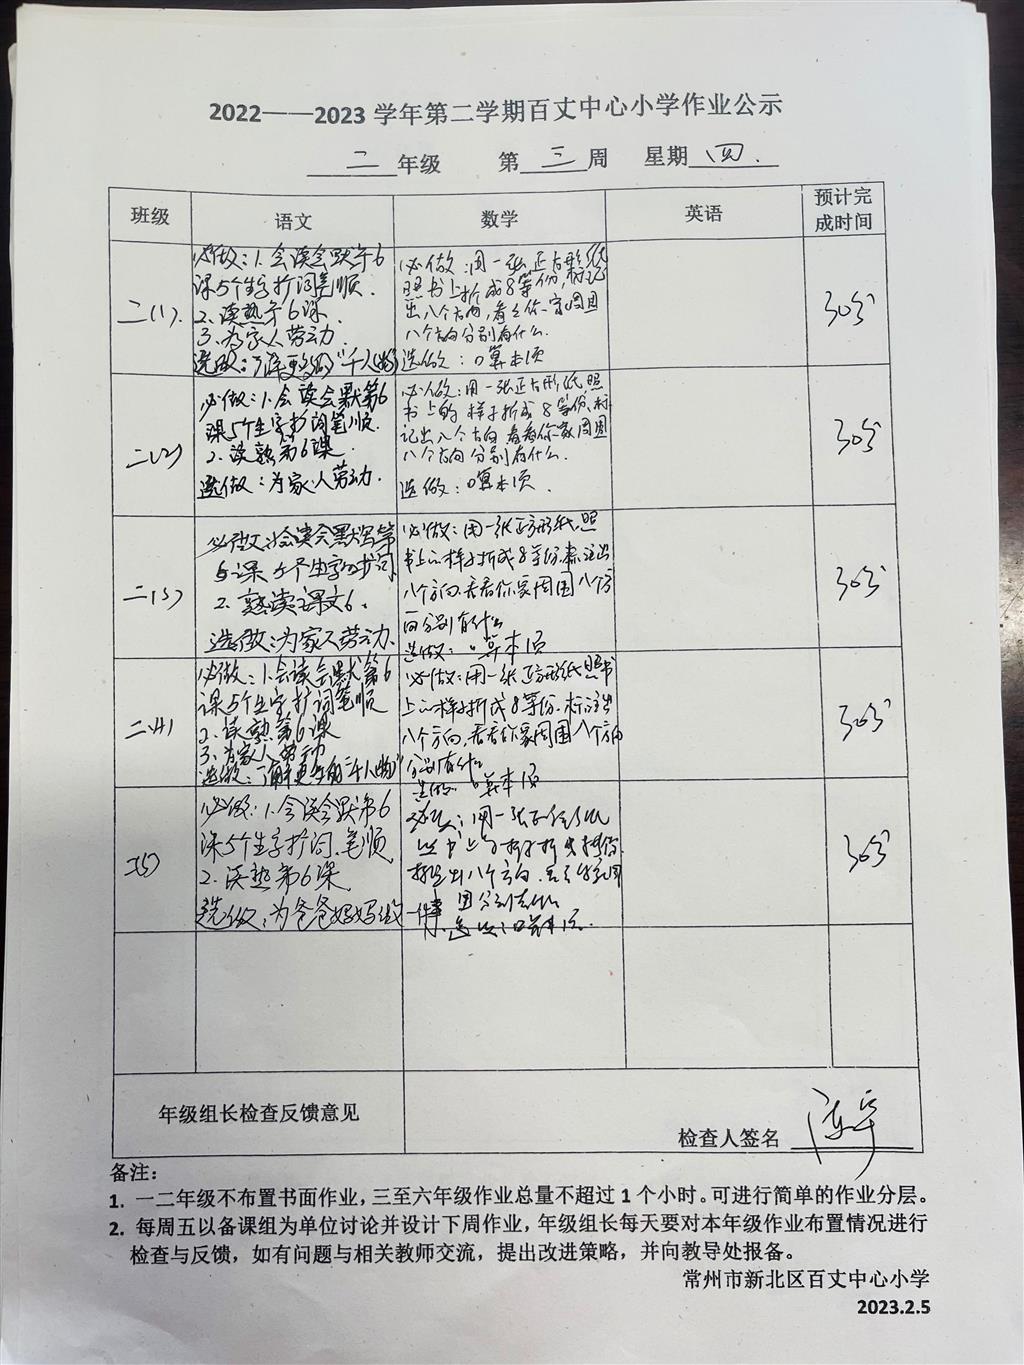 2022——2023 学年第二学期百丈中心小学作业公示
二 年级 第 三 周 星期 四.
班级 语文 数学 英语 预计完成时间
二(1).
必做:1.会读会默第6
课5个生字扩词笔顺.
2.读熟第6课.
3.为家人劳动.
选做:了解更多的"千人物"
必做:用一张正方形纸
照书上折成8等份,标记
出八个方向,看看你家周围
八个方向分别有什么.
选做:口算本1页
30分
二(2)
必做:1.会读会默第6
课5个生字扩词笔顺.
2.读熟第6课.
选做:为家人劳动.
必做:用一张正方形纸,照
书上的样子折成8等份,标
记出八个方向,看看你家周围
八个方向分别有什么.
选做:口算本1页.
30分
二(3)
必做:1.会读会默写第
6课5个生字的扩词
2.熟读课文6.
选做:为家人劳动.
必做:用一张正方形纸,照
书上的样子折成8等份.标注出
八个方向.看看你家周围八个方
向分别有什么
选做:口算本1页
30分
二(4)
必做:1.会读会默第6
课5个生字扩词笔顺
2.读熟第6课
3.为家人劳动
选做:了解更多的"千人物"
必做:用一张正方形纸照书
上的样子折成8等份.标注出
八个方向,看看你家周围八个方向
分别有什么
选做:口算本1页
30分
二(5)
必做:1.会读会默第6
课5个生字扩词、笔顺
2.读熟第6课
选做:为爸爸妈妈做一件事.
必做:用一张正方形纸
照书上的样子折成8等份.
标出八个方向.看看你家周
围分别有什么
选做:口算本1页.
30分
年级组长检查反馈意见
检查人签名
备注:
1. 一二年级不布置书面作业,三至六年级作业总量不超过 1 个小时。可进行简单的作业分层。
2. 每周五以备课组为单位讨论并设计下周作业,年级组长每天要对本年级作业布置情况进行
检查与反馈,如有问题与相关教师交流,提出改进策略,并向教导处报备。
常州市新北区百丈中心小学
2023.2.5